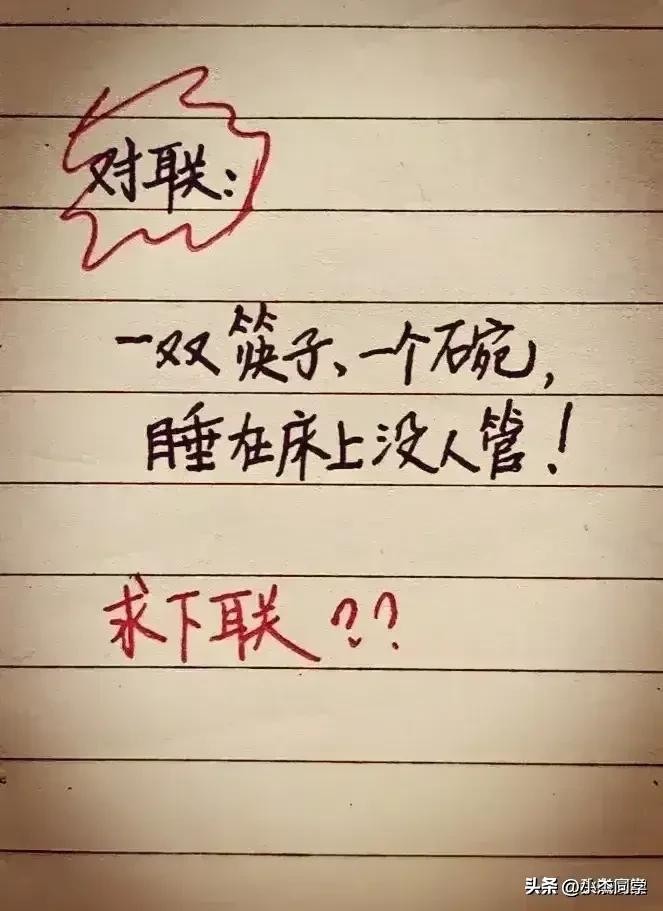 对联:
一双筷子、一个碗,
睡在床上没人管!
求下联??
头条 @小柒同学